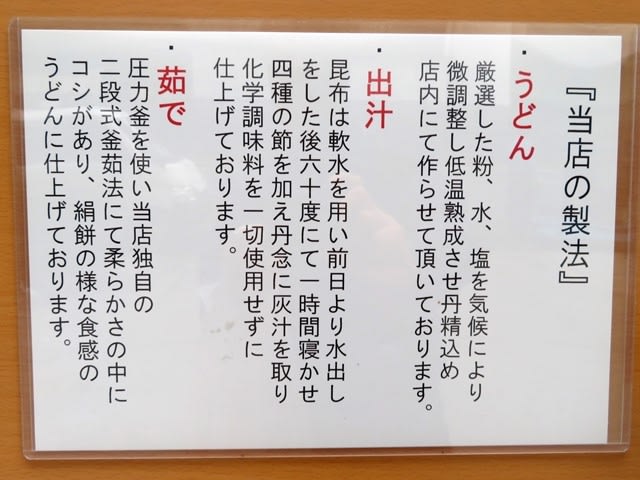 『当店の製法』
・うどん
厳選した粉、水、塩を気候により
微調整し低温熟成させ丹精込め
店内にて作らせて頂いております。
・出汁
昆布は軟水を用い前日より水出し
をした後六十度にて一時間寝かせ
四種の節を加え丹念に灰汁を取り
化学調味料を一切使用せずに
仕上げております。
・茹で
圧力釜を使い当店独自の
二段式釜茹法にて柔らかさの中に
コシがあり、絹餅の様な食感の
うどんに仕上げております。